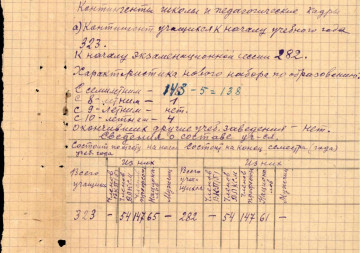 Контингенты школы и педагогические кадры
а) Контингент учащихся к началу учебного года
323.
К началу экзаменационной сессии 282.
Характеристика нового набора по образованию:
С семилетним - 143 - 5 = 138
С 8-летним - 1
С 9-летним - нет.
С 10-летним - 4
Окончивших другие учеб. заведения - нет.
Сведения о составе уч-ся.
Состоит по на начало Состоит на конец семестра (года)
учеб. года
Всего учащих Из них Всего учащихся Из них
323 - 54 147 65 - 282 - 54 147 61 -